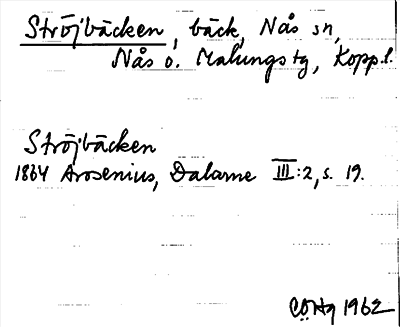 Ströjbäcken, bäck, Nås sn,
Nås o. Malungs tg, Kopp.l.
Ströjbäcken
1864 Arosenius, Dalarne III:2, s. 19.
CÖHg 1962